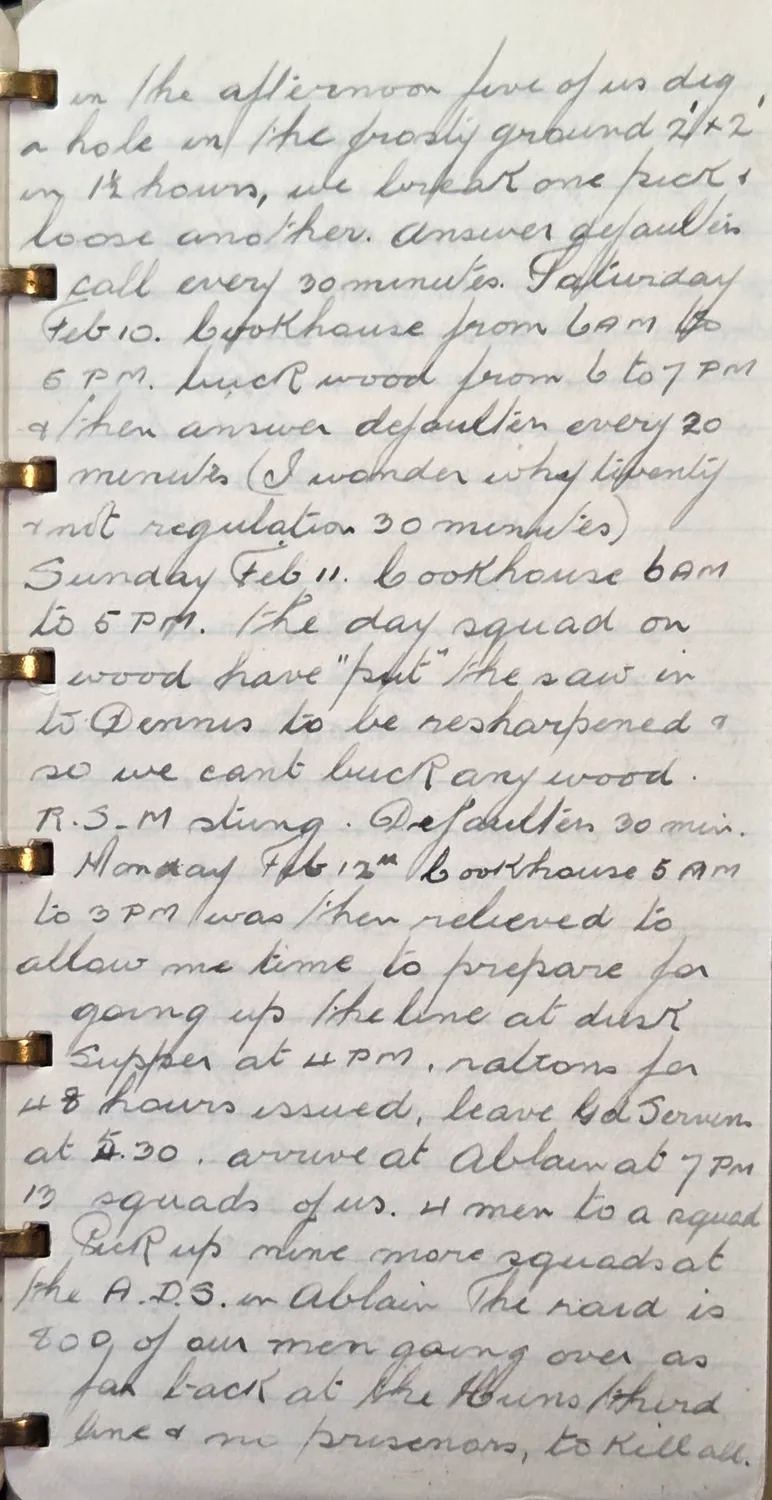 in the afternoon five of us dig
a hole in the frosty ground 2'x2'
in 1½ hours, we break one pick &
loose another. Answer defaulters
call every 30 minutes. Saturday
Feb 10. Cookhouse from 6 AM to
5 PM. buck wood from 6 to 7 PM
& then answer defaulters every 20
minutes (I wonder why twenty
& not regulation 30 minutes)
Sunday Feb 11. Cookhouse 6 AM
to 5 PM. The day squad on
wood have "put" the saw in
to Dennis to be resharpened &
so we cant buck any wood.
R.S-M stung. Defaulters 30 min.
Monday Feb 12th Cookhouse 5 AM
to 3 PM was then relieved to
allow me time to prepare for
going up the line at dusk
Supper at 4 PM, rations for
48 hours issued, leave Gd Servins
at 5.30. arrive at Ablain at 7 PM
13 squads of us. 4 men to a squad
Pick up nine more squads at
the A.D.S. in Ablain The raid is
800 of our men going over as
far back at the Huns third
line & no prisenors, to Kill all.